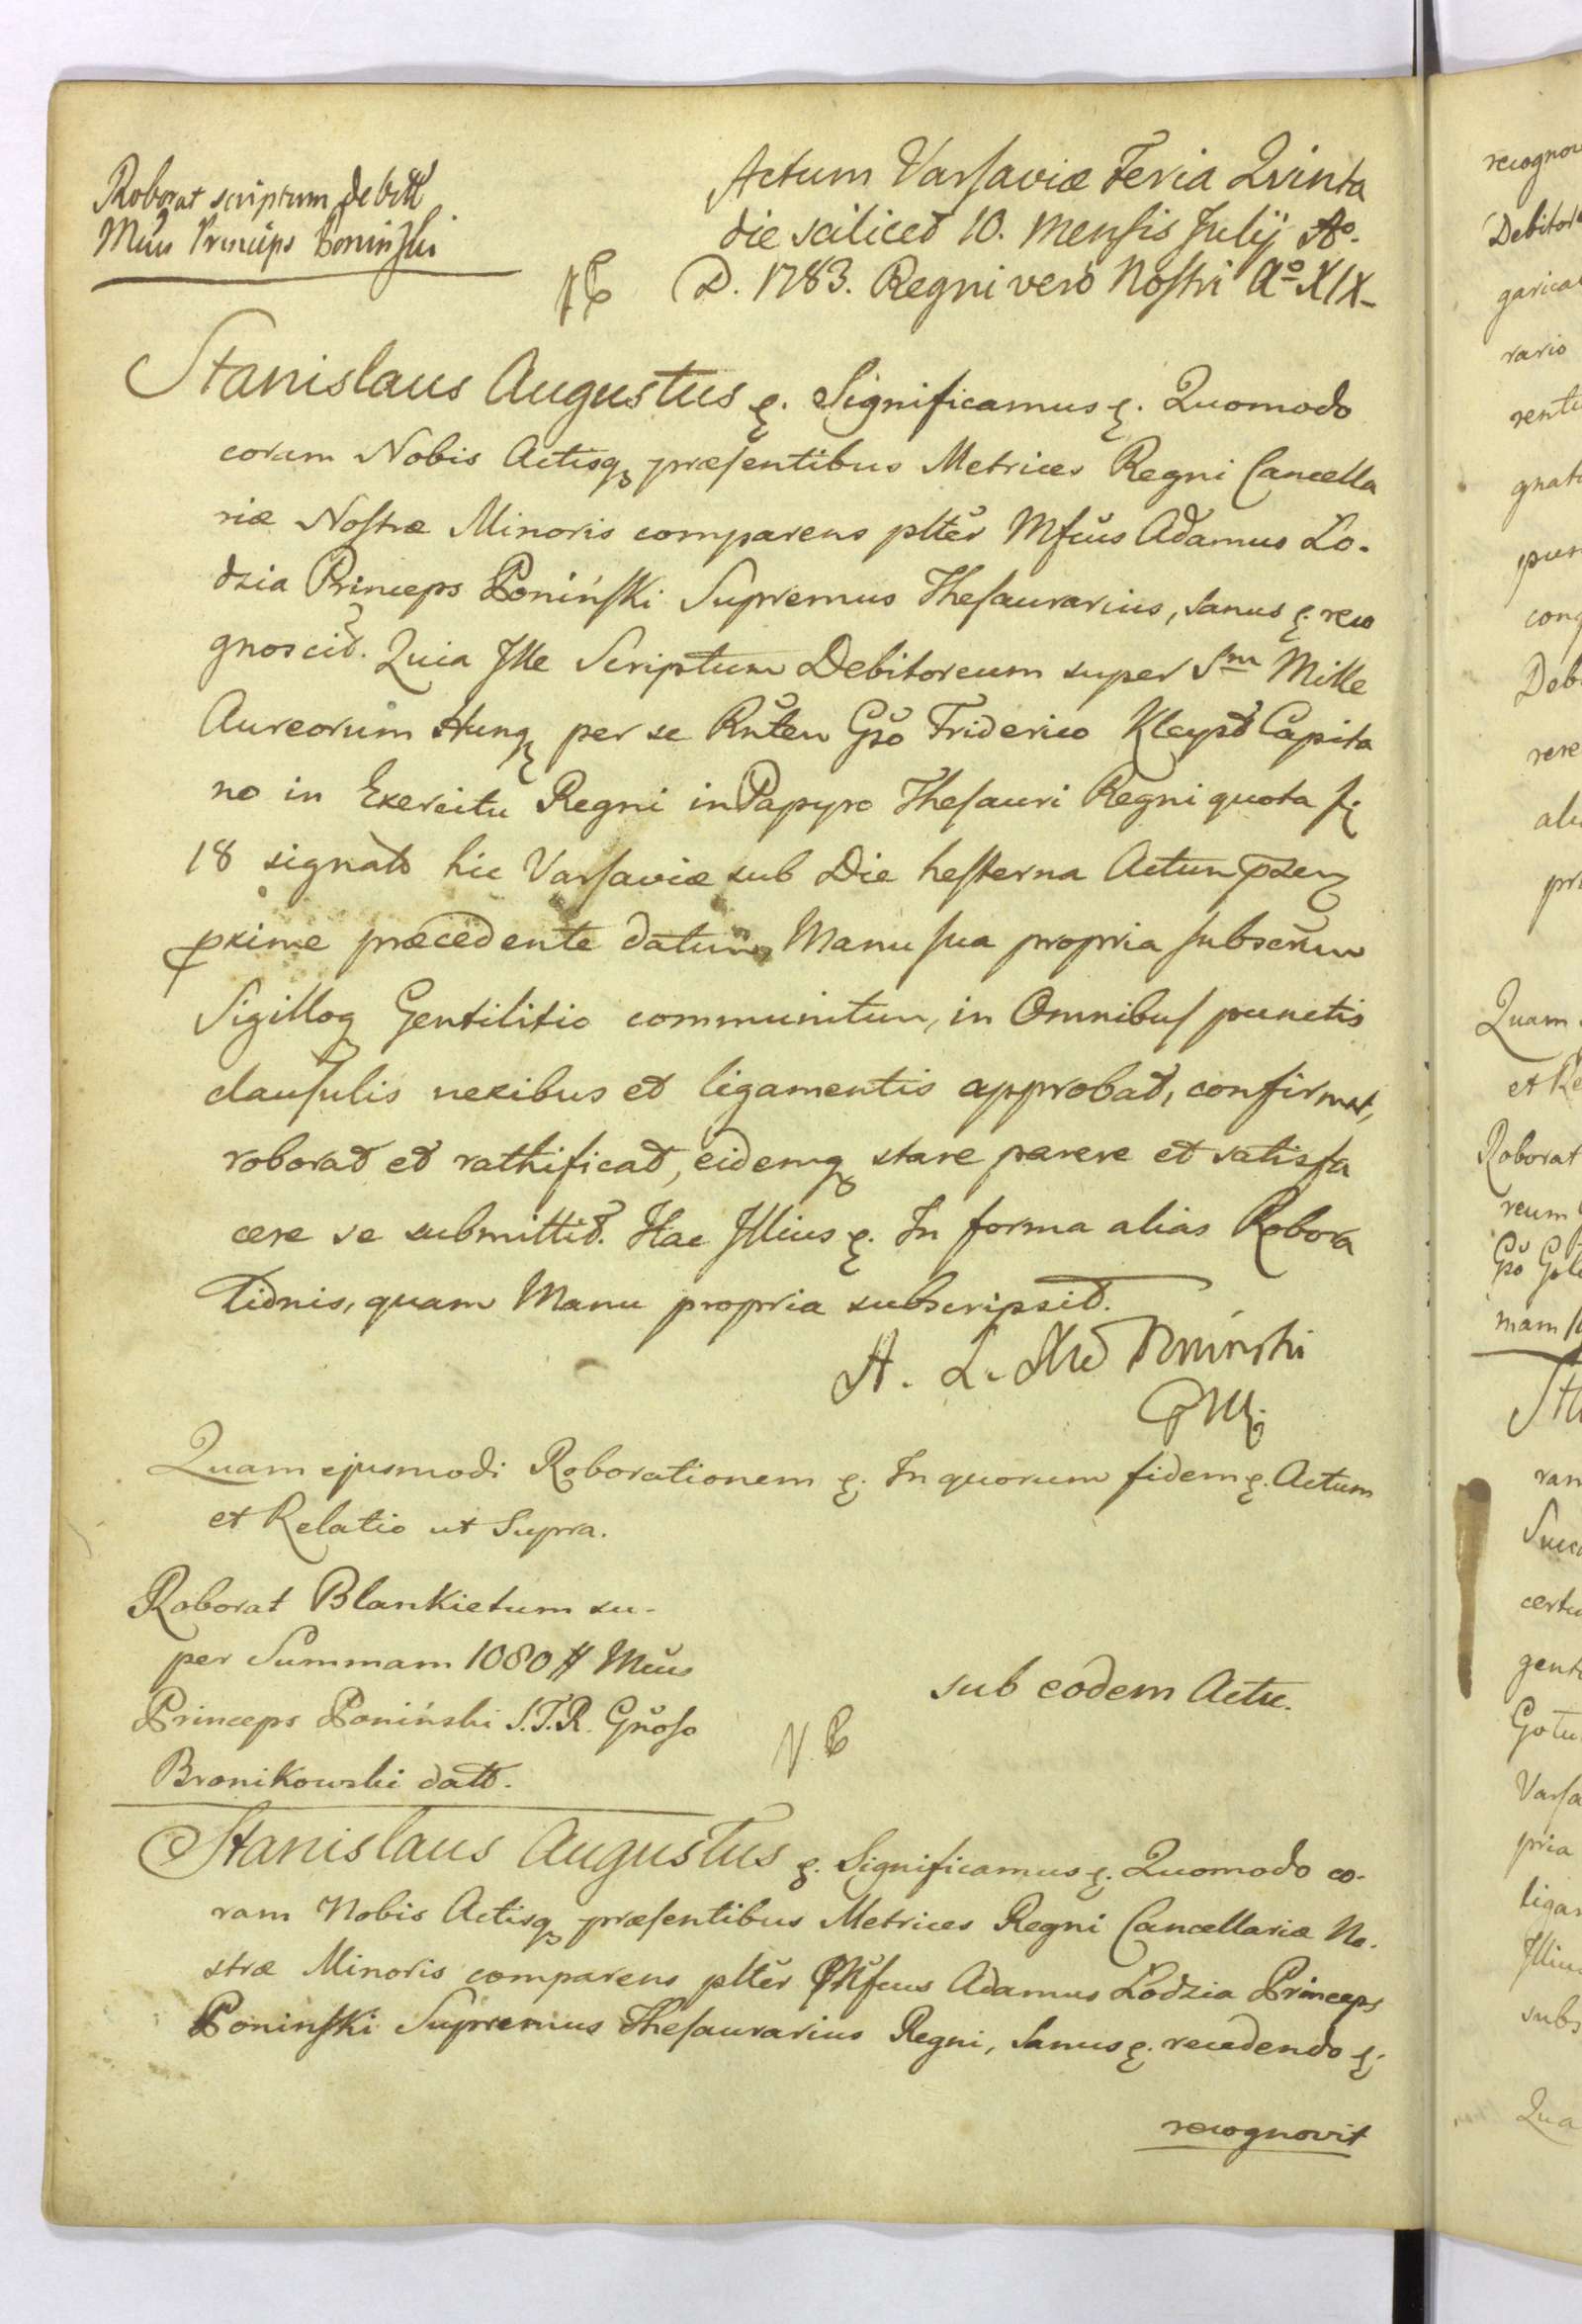 Roborat scriptum debitt
Mcus Princeps Poninski
Actum Varsaviæ Feria Quinta
die scilicet 10. Mensis Julij Ao.
NB D. 1783. Regni vero Nostri Ao XIX
Stanislaus Augustus &. Significamus &. Quomodo
coram Nobis Actisq præsentibus Metrices Regni Cancella
riæ Nostræ Minoris comparens plter Mfcus Adamus Lo-
dzia Princeps Poniński Supremus Thesaurarius, sanus &. reco
gnoscit. Quia Ille Scriptum Debitoreum super Sm Mille
Aureorum Hung per se Rnten Gso Friderico Capita
no in Exercitu Regni in Papyro Thesauri Regni quota f
18 signato hic Varsaviæ sub Die hesterna Actum pzen
pxime præcedente datum, Manu sua propria subscrum
Sigilloq Gentilitio communitum, in Omnibus punctis
clausulis nexibus et ligamentis approbat, confirmat,
roborat et rathificat, eidemq stare parere et satisfa
cere se submittit. Hac Illius &. In forma alias Robora
tionis, quam Manu propria subscripsit.
A. L. Poninski
Quam ejusmodi Roborationem &. In quorum fidem &. Actum
et Relatio ut Supra.
Roborat Blankietum su-
per Summam 1080 # Mcus
Princeps Poniński S.T.R. Gnoso
Bronikowski datt.
sub eodem Actu.
N.B
Stanislaus Augustus &. Significamus &. Quomodo co-
ram Nobis Actisq præsentibus Metrices Regni Cancellariæ No-
stræ Minoris comparens plter Mfcus Adamus Lodzia Princeps
Poninski Supremus Thesaurarius Regni, Sanus &. recedendo &.
recognovit
recogno
Debitor
garica
rario
gnat
Deb
Quam
et Re
Roborat
reum
Gso Gol
mam
ran
certu
gent
Gotu
Varsa
pria
liga
Illiu
subs
Qua